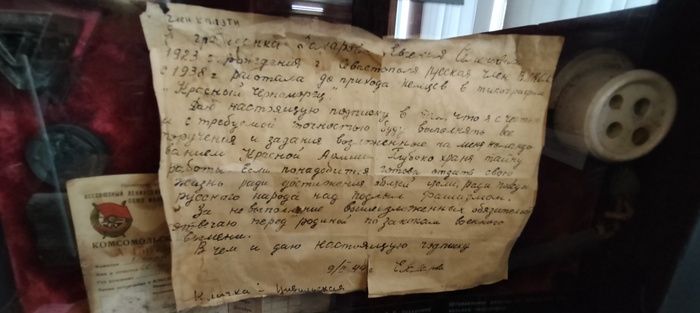 Я
Евгения
1923 г. рождения г. Севастополя русская член ВЛКСМ
с 1938 г. работала до прихода немцев в типографии
"Красный Черноморец"
Даю настоящую подписку в том, что я с честью
и с требуемой точностью буду выполнять все
поручения и задания возложенные на меня командо
ванием Красной Армии. Глубоко храня тайну
работы если понадобится готова отдать свою
жизнь ради достижения общей цели, ради победы
русского народа над подлым фашизмом.
За невыполнение вышеизложенных обязательств
отвечаю перед родиной по законам военного
времени.
В чем и даю настоящую подписку
Кличка -
КОМСОМОЛЬСК